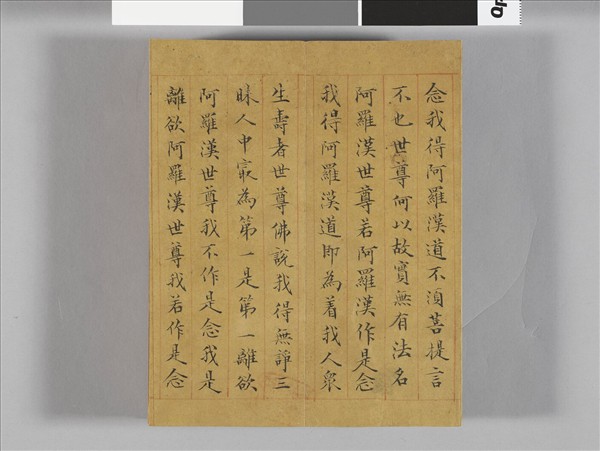 念我得阿羅漢道不須菩提言
不也世尊何以故實無有法名
阿羅漢世尊若阿羅漢作是念
我得阿羅漢道即為着我人衆
生壽者世尊佛說我得無諍三
昧人中冣為第一是第一離欲
阿羅漢世尊我不作是念我是
離欲阿羅漢世尊我若作是念